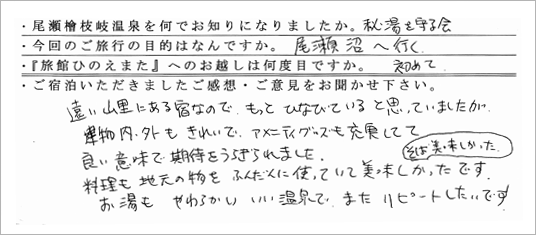 ・尾瀬檜枝岐温泉を何でお知りになりましたか。秘湯を守る会
・今回のご旅行の目的はなんですか。 尾瀬沼へ行く.
・『旅館ひのえまた』へのお越しは何度目ですか。 初めて
・ご宿泊いただきましたご感想・ご意見をお聞かせ下さい。
遠い山里にある宿なので、もっとひなびていると思っていましたが
建物内・外もきれいで、アメニティグッズも充実してて
良い意味で期待をうらぎられました。 そば美味しかった
料理も地元の物をふんだんに使っていて美味しかったです
お湯もやわらかいいい温泉で、またリピートしたいです